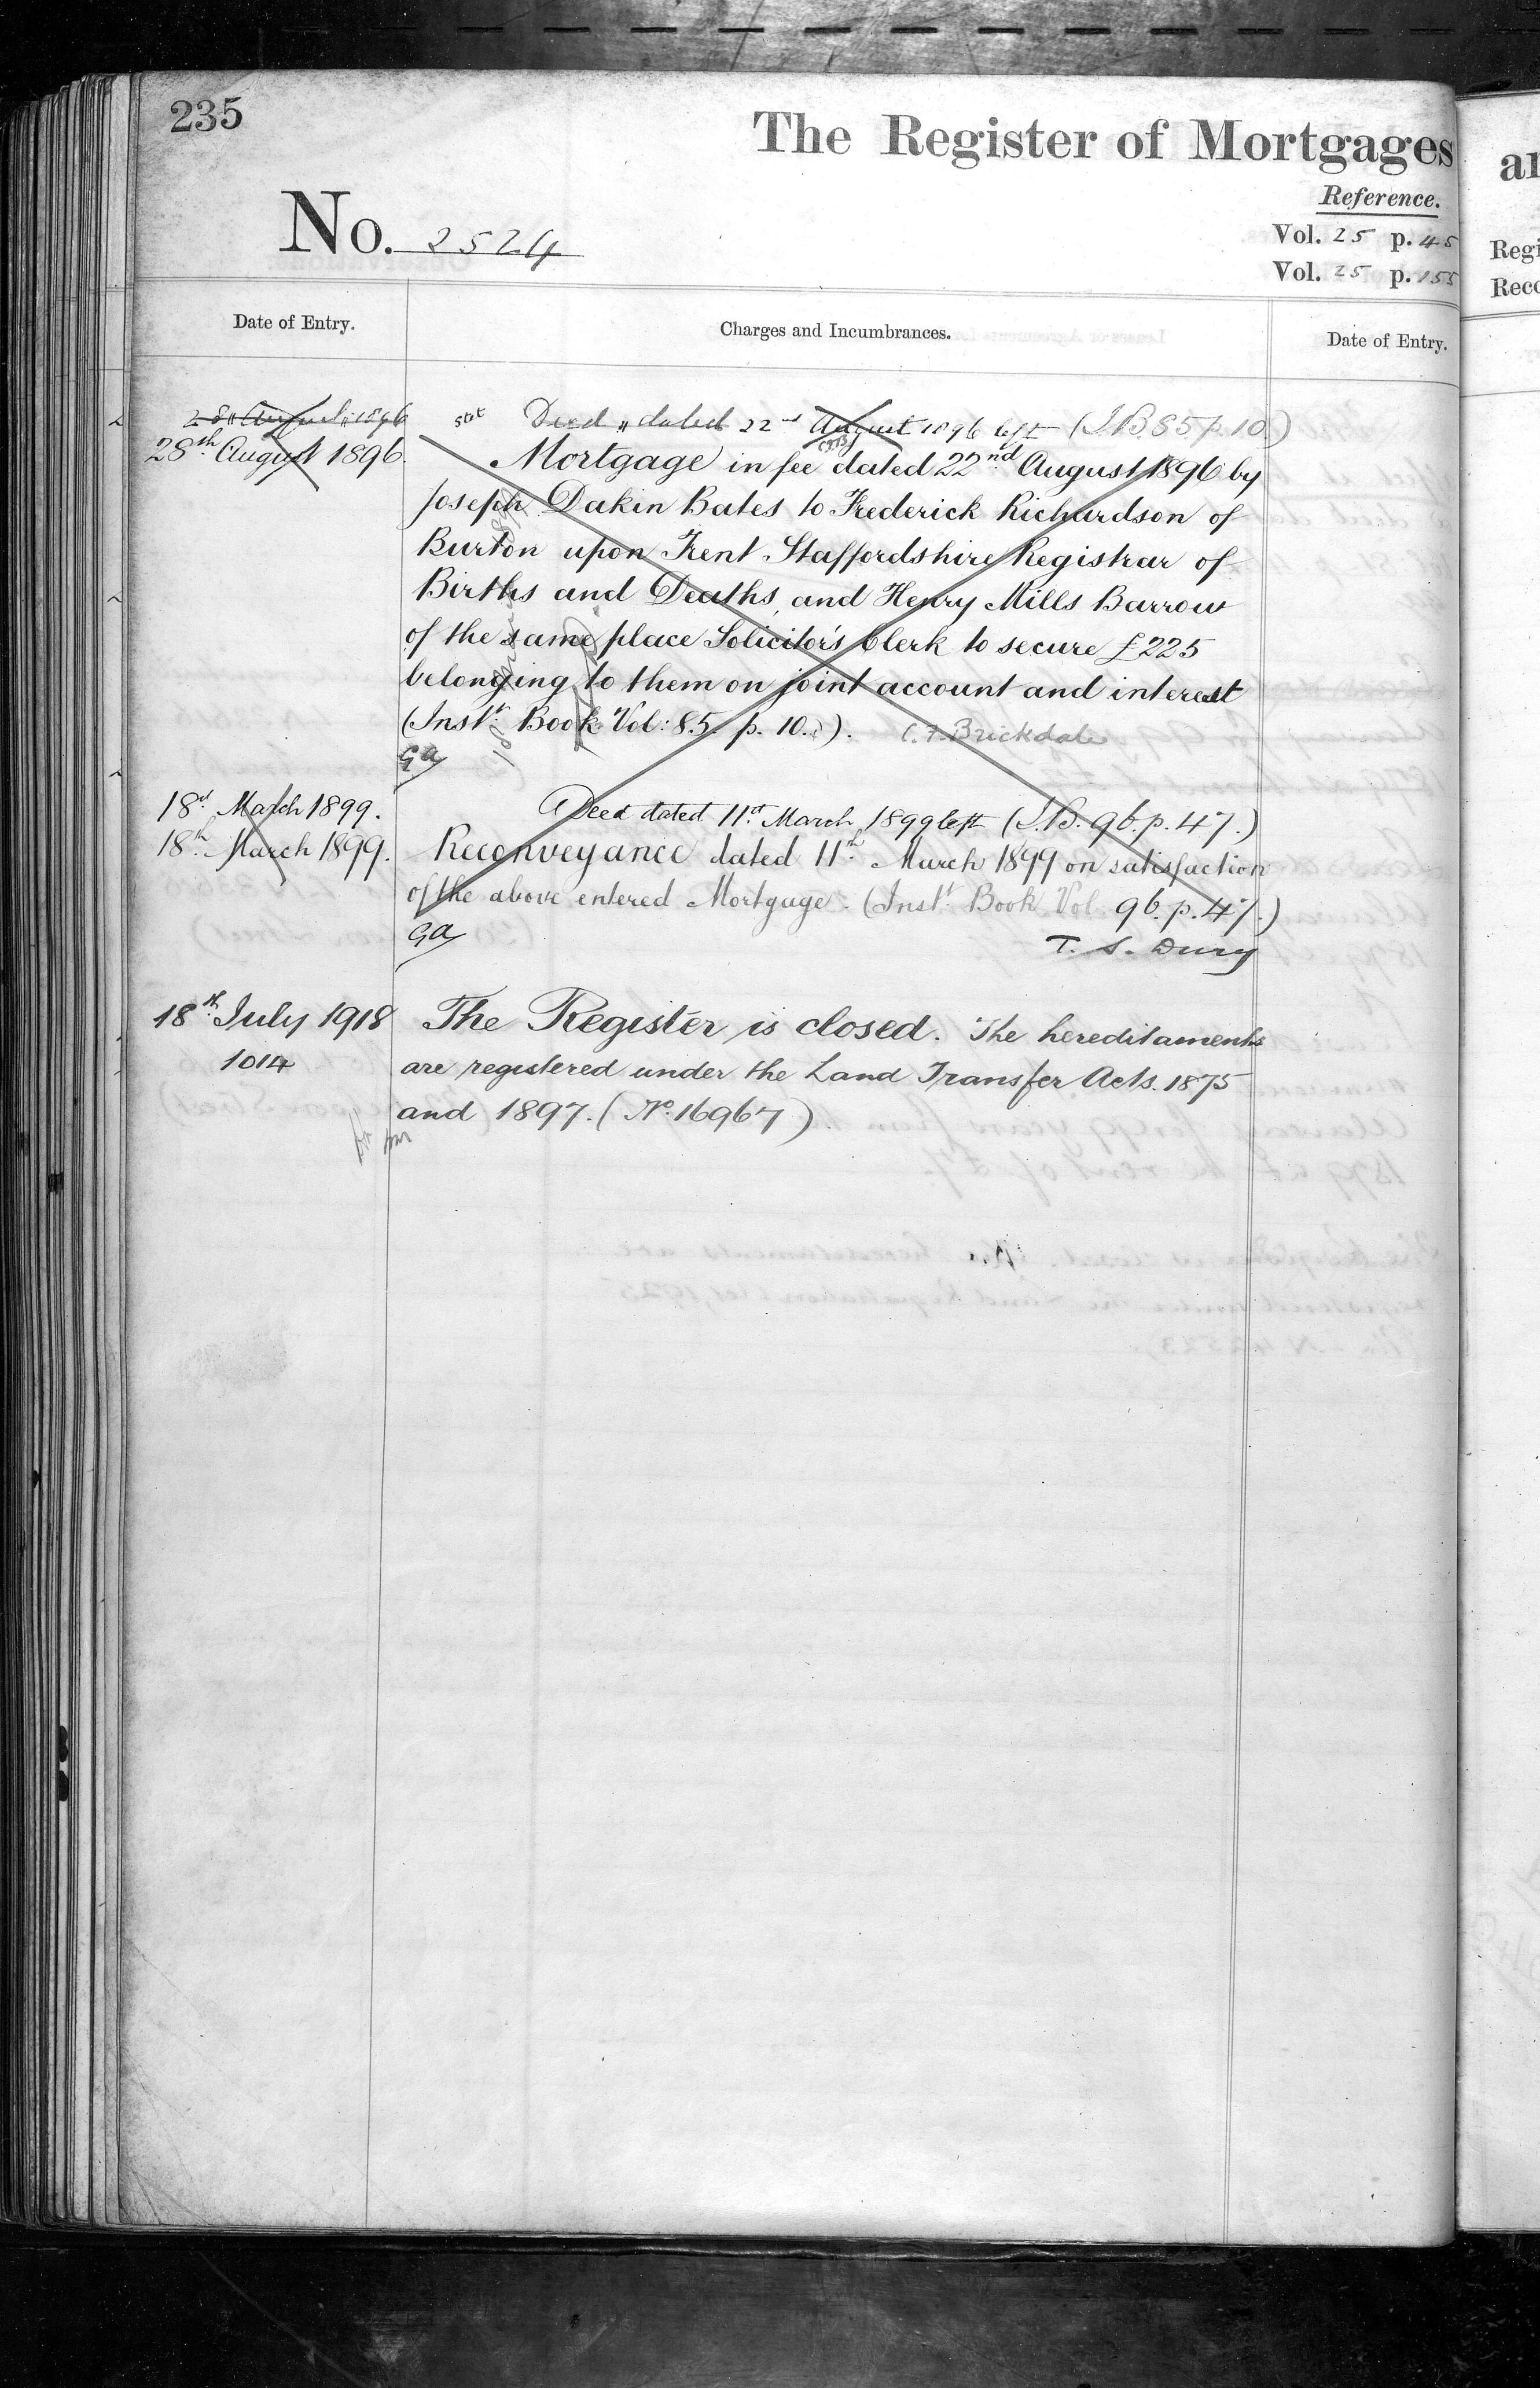 235
The Register of Mortgages
Reference.
No. 2524
Vol. 25 p. 45
Vol. 25 p. 155
Date of Entry.
Charges and Incumbrances.
Date of Entry.
28th August 1896
stet Deed dated 22nd August 1896 left (I.B. 85 p. 10.)
28th August 1896.
Mortgage in fee dated 22nd August 1896 by
Joseph Dakin Bates to Frederick Richardson of
Burton upon Trent Staffordshire Registrar of
Births and Deaths, and Henry Mills Barrow
of the same place Solicitor's Clerk to secure £225
belonging to them on joint account and interest
(Instt. Book Vol: 85. p. 10.).
C. F. Brickdale
GA
18th March 1899.
Deed dated 11th March 1899 left (I.B. 96. p. 47.)
18th March 1899.
Reconveyance dated 11th March 1899 on satisfaction
of the above entered Mortgage. (Instt. Book Vol. 96. p. 47.)
GA
T. S. Dury
18th July 1918
The Register is closed. The hereditaments
1014
are registered under the Land Transfer Acts. 1875
and 1897. (No. 16967)
ar
Regi
Reco